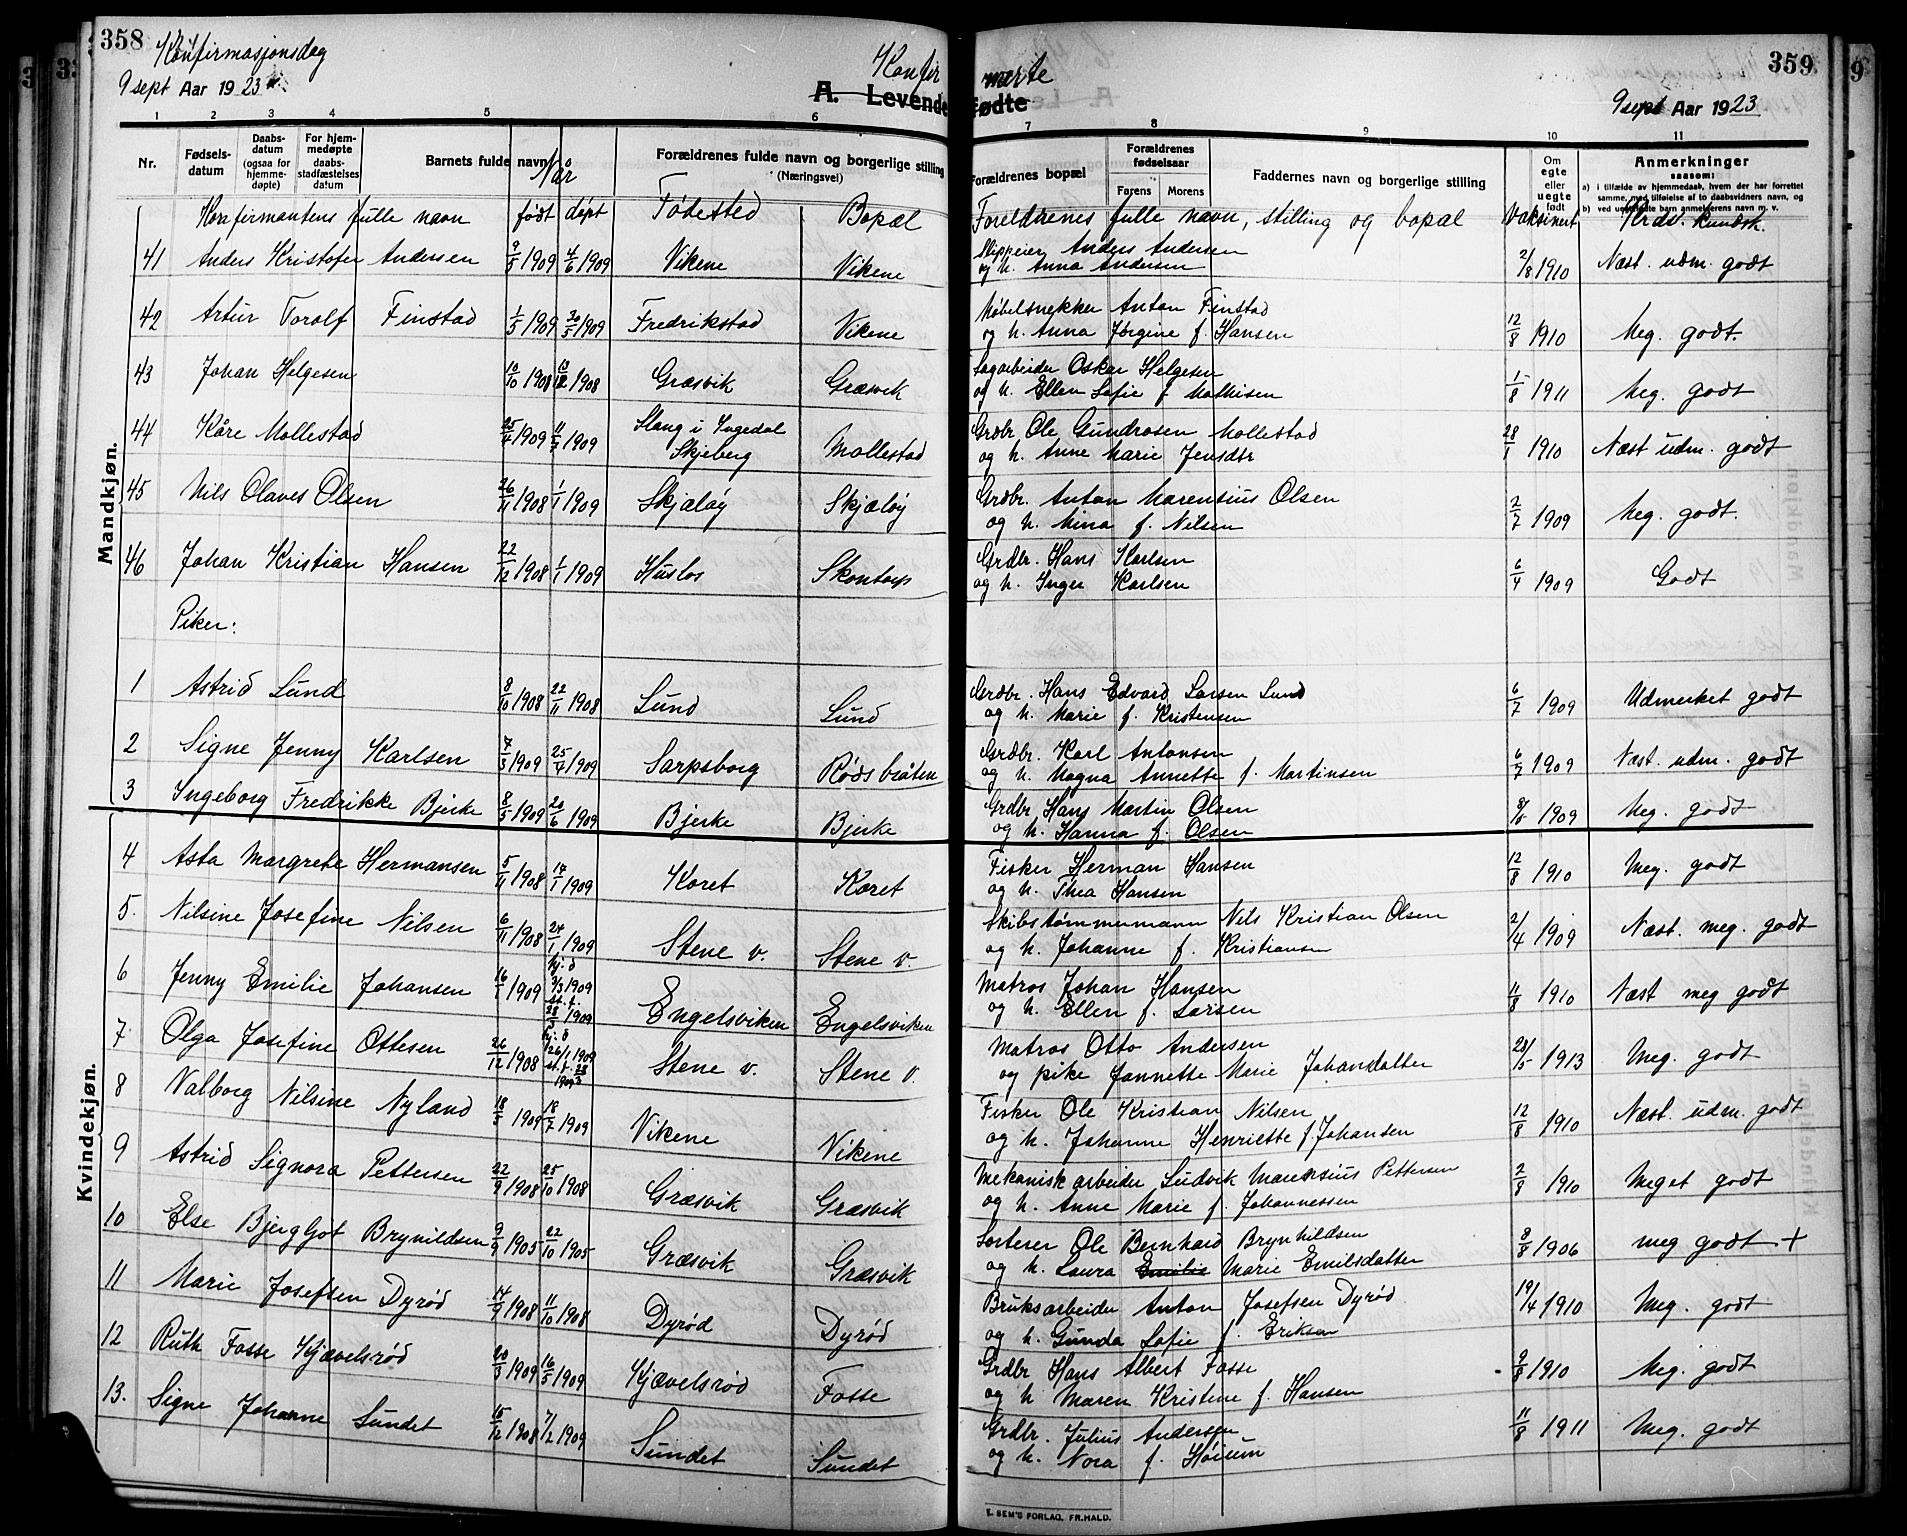 358
Konfirmasjonsdag
9 sept Aar 1923
Konfir merte
A. Levende Fødte
359
9 sept Aar 1923
1 2 3 4 5 6 7 8 9 10 11
Nr. Fødsels-datum Daabs-datum (ogsaa for hjemme-døpte) For hjem-medøpte daabs-stadfæstelses datum Barnets fulde navn Når Forældrenes fulde navn og borgerlige stilling (Næringsvei) Forældrenes bopæl Forældrenes fødselsaar Farens Morens Faddernes navn og borgerlige stilling Om egte eller uegte født Anmerkninger saasom:
a) i tilfælde av hjemmedaab, hvem der har forrettet samme, med tilføielse af to daabsvidners navn, og
b) ved uegtefødte barn anmelderens navn m. v.
Konfirmantens fulle navn født døpt Fødested Bopæl Foreldrenes fulle navn, stilling og bopæl Vaksinert Krds. kundsk.
Mandkjøn.
41 Anders Kristofer Andersen 9/5 1909 4/6 1909 Vikene Vikene Skippeier Anders Andersen
og h. Anna Andersen 2/8 1910 Næst. udm. godt
42 Artur Toralf Finstad 1/5 1909 30/5 1909 Fredrikstad Vikene Møbelsnekker Anton Finstad
og h. Anna Jørgine f. Hansen 12/8 1910 Meg. godt.
43 Johan Helgesen 10/10 1908 1908 Græsvik Græsvik Sagarbeider Oskar Helgesen
og h. Ellen Sofie f. Mathisen 1/8 1911 Meg. godt
44 Kåre Mollestad 25/4 1909 11/7 1909 Slang i Ingedal
Skjeberg Mollestad Grdbr. Ole Gundrosen Mollestad
og h. Anne Marie Jensdtr 28/1 1910 Næst udm. godt
45 Nils Olaves Olsen 26/11 1908 1/1 1909 Skjæløy Skjæløy Grdbr. Anton Marensius Olsen
og h. Mina f. Nilsen 2/7 1909 Meg. godt.
46 Johan Kristian Hansen 22/12 1908 1/1 1909 Huslos Skontorp Grdbr. Hans Karlsen
og h. Inger Karlsen 6/4 1909 Godt
Piker:
Kvindekjøn.
1 Astrid Lund 8/10 1908 22/11 1908 Lund Lund Grdbr. Hans Edvard Larsen Lund
og h. Marie f. Kristensen 6/7 1909 Udmerket godt
2 Signe Jenny Karlsen 7/3 1909 25/4 1909 Sarpsborg Rødsbråten Grdbr. Karl Antonsen
og h. Magna Annette f. Martinsen 6/7 1909 Næst. udm. godt
3 Ingeborg Fredrikke Bjerke 8/5 1909 20/6 1909 Bjerke Bjerke Grdbr Hans Martin Olsen
og h. Hanna f. Olsen 1909 Meg. godt
4 Asta Margrete Hermansen 5/11 1908 17/1 1909 Koret Koret Fisker Herman Hansen
og h. Thea Hansen 12/8 1910 Meg. godt
5. Nilsine Josefine Nilsen 6/11 1908 24/1 1909 Stene v. Stene v. Skibstømmermann Nils Kristian Olsen
og h. Johanne f. Kristiansen 2/4 1909 Næst. meg. godt
6 Jenny Emilie Johansen 16/1 1909 hj. d 3/3 1909 st. f. 1909 Engelsviken Engelsviken Matros Johan Hansen
og h. Ellen f. Larsen 11/8 1910 Næst meg godt
7 Olga Josefine Ottesen 26/12 1908 hj. d 26/1 1909 st. f. 28/3 1909 Stene v. Stene v. Matros Otto Andersen
og pike Jannette Marie Johansdatter 28/5 1913 Meg. godt
8 Valborg Nilsine Nyland 18/5 1909 18/7 1909 Vikene Vikene Fisker Ole Kristian Nilsen
og h. Johanne Henriette f. Johansen 12/8 1910 Næst. udm. godt
9 Astrid Signora Pettersen 22/9 1908 25/10 1908 Græsvik Græsvik Mekanisk arbeider Ludvik Marensius Pettersen
og h. Anne Marie f. Johannessen 2/8 1910 Meget godt
10 Else Bjergljot Brynildsen 9/9 1905 22/10 1905 Græsvik Græsvik Sorterer Ole Bernhard Brynhildsen
og h. Laura Emilie Marie Emilsdatter 8/8 1906 meg godt +
11 Marie Josefsen Dyrød 14/9 1908 11/10 1908 Dyrød Dyrød Bruksarbeider Anton Josefsen Dyrød
og h. Gunda Sofie f. Eriksen 19/4 1910 Meg. godt
12 Ruth Fosse Kjævelsrød 20/3 1909 16/5 1909 Kjævelsrød Fosse Grdbr Hans Albert Fosse
og h Maren Kristine f. Hansen 9/8 1910 Meg. godt
13. Signe Johanne Sundet 15/12 1908 7/2 1909 Sundet Sundet Grdbr. Julius Andersen
og h. Nora f. Høium 11/8 1911 Meg. godt
E. SEM'S FORLAG, FR.HALD.